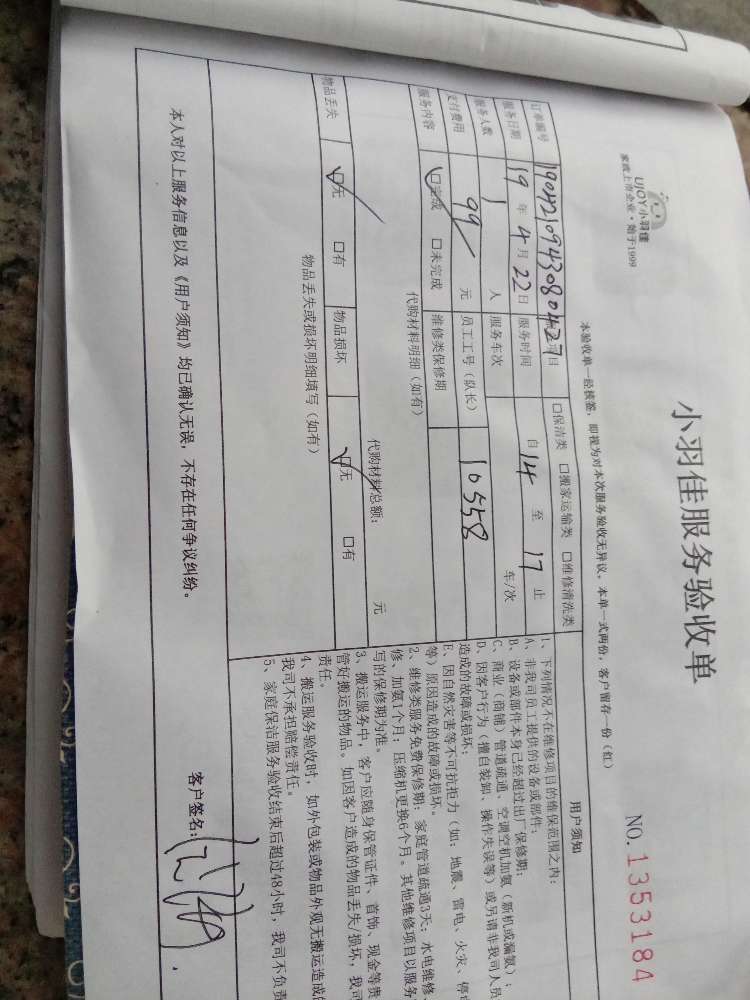 UJOY小羽佳
家政上市企业·始于1999
小羽佳服务验收单
NO.1353184
本验收单一经核签，即视为对本次服务验收无异议。本单一式两份，客户留存一份（红）
订单编号 19042109430804427 项目 □保洁类 □搬家运输类 □维修清洗类
服务日期 19年4月22日 服务时间 自14至17止
服务人数 1人 服务车次 车/次
支付费用 99元 员工工号（队长） 10558
服务内容 ☑完成 □未完成 维修类保修期
代购材料明细（如有）
代购材料总额： 元
物品丢失 ☑无 □有 物品损坏 ☑无 □有
物品丢失或损坏明细填写（如有）
用户须知
1、下列情况不在维修项目的维保范围之内：
A、非我司员工提供的设备或部件；
B、设备或部件本身已经超过出厂保修期；
C、商业（商铺）管道疏通、空调空机加氨（新机或漏氨）；
D、因客户行为（擅自装卸、操作失误等）或另请非我司人员
造成的故障或损坏；
E、因自然灾害等不可抗拒力（如：地震、雷电、火灾、停
等）原因造成的故障或损坏。
2、维修类服务免费保修期：家庭管道疏通3天；水电维修、
修、加氨1个月；压缩机更换6个月。其他维修项目以服务
写的保修期为准。
3、搬运服务中，客户应随身保管证件、首饰、现金等贵
管好搬运的物品。如因客户造成的物品丢失/损坏，我司
责任。
4、搬运服务验收时，如外包装或物品外观无搬运造成的
我司不承担赔偿责任。
5、家庭保洁服务验收结束后超过48小时，我司不负责
本人对以上服务信息以及《用户须知》均已确认无误，不存在任何争议纠纷。
客户签名：